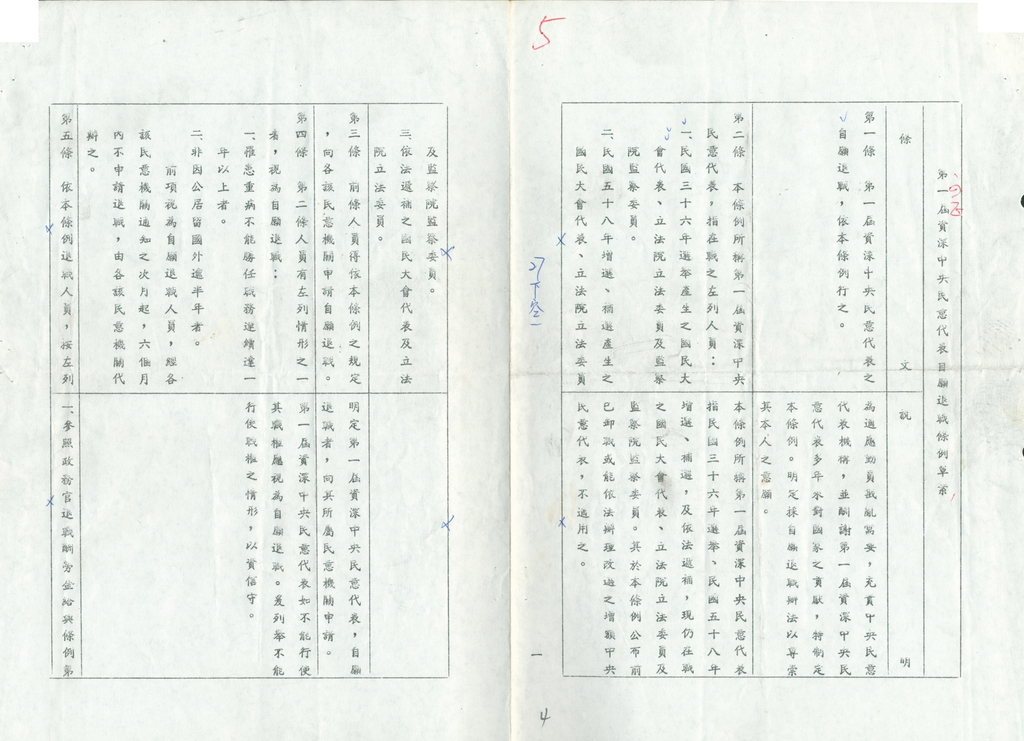 5
第一屆資深中央民意代表自願退職條例草案
條文
說明
第一條　第一屆資深中央民意代表之
自願退職，依本條例行之。
為適應動員戡亂需要，充實中央民意
代表機構，並酬謝第一屆資深中央民
意代表多年來對國家之貢獻，特制定
本條例。明定採自願退職辦法以尊崇
其本人之意願。
第二條　本條例所稱第一屆資深中央
民意代表，指在職之左列人員：
一、民國三十六年選舉產生之國民大
會代表、立法院立法委員及監察
院監察委員。
二、民國五十八年增選、補選產生之
國民大會代表、立法院立法委員
本條例所稱第一屆資深中央民意代表
指民國三十六年選舉、民國五十八年
增選、補選，及依法遞補，現仍在職
之國民大會代表、立法院立法委員及
監察院監察委員。其於本條例公布前
已卸職或能依法辦理改選之增額中央
民意代表，不適用之。
一
4
及監察院監察委員。
三、依法遞補之國民大會代表及立法
院立法委員。
第三條　前條人員得依本條例之規定
，向各該民意機關申請自願退職。
明定第一屆資深中央民意代表，自願
退職者，向其所屬民意機關申請。
第四條　第二條人員有左列情形之一
者，視為自願退職：
一、罹患重病不能勝任職務連續達一
年以上者。
二、非因公居留國外逾半年者。
前項視為自願退職人員，經各
該民意機關通知之次月起，六個月
內不申請退職，由各該民意機關代
辦之。
第一屆資深中央民意代表如不能行使
其職權應視為自願退職。爰列舉不能
行使職權之情形，以資信守。
第五條　依本條例退職人員，按左列
一、參照政務官退職酬勞金給與條例第